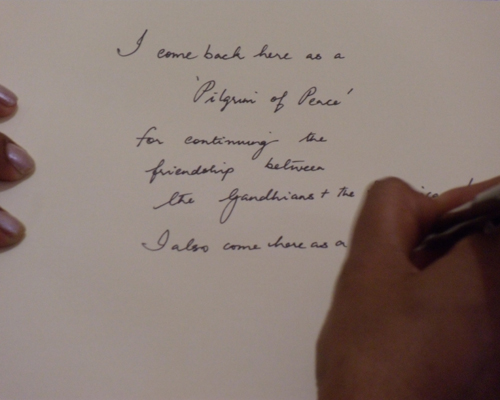 I come back here as a
'Pilgrim of Peace'
for continuing the
friendship between
the Gandhians + the
I also come here as a